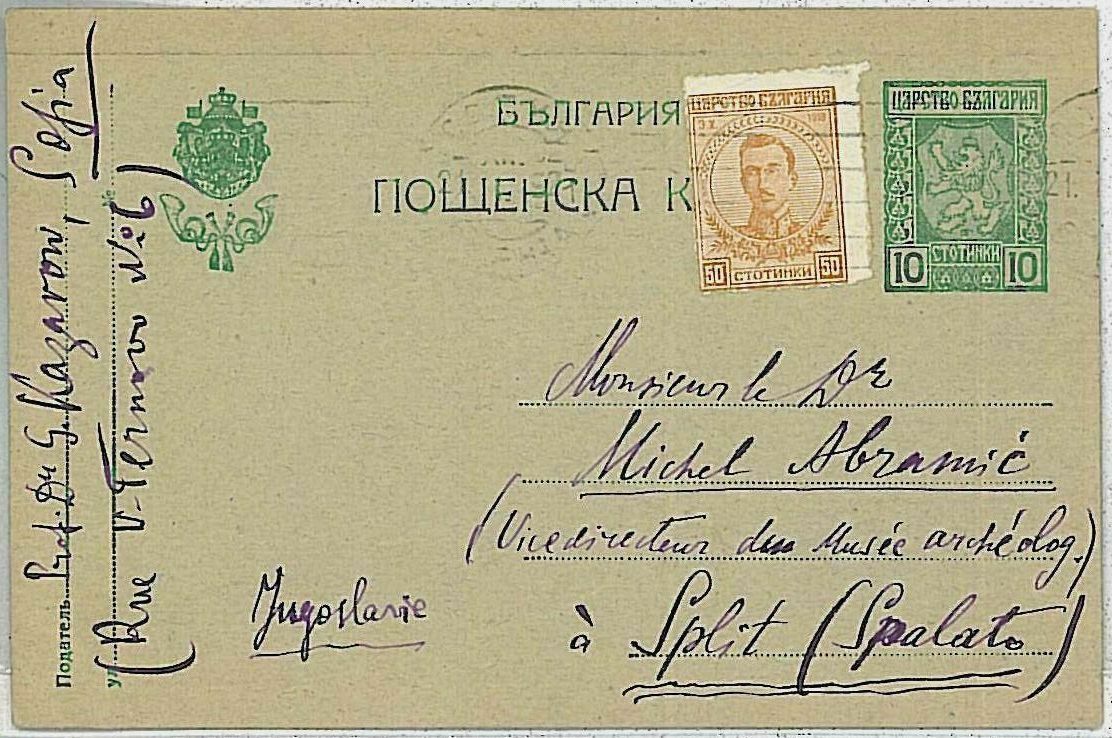 БЪЛГАРИЯ
ПОЩЕНСКА К
ЦАРСТВО БЪЛГАРИЯ
3 X 1918
50 СТОТИНКИ 50
ЦАРСТВО БЪЛГАРИЯ
10 СТОТИНКИ 10
21.
Monsieur le Dr
Michel Abramić
(Vicedirecteur du Musée archéolog.)
à Split (Spalato)
Jugoslavie
Податель Prof. Dr G. Kazarow, Sofia
ул. (Rue V-Ternovo № 6)